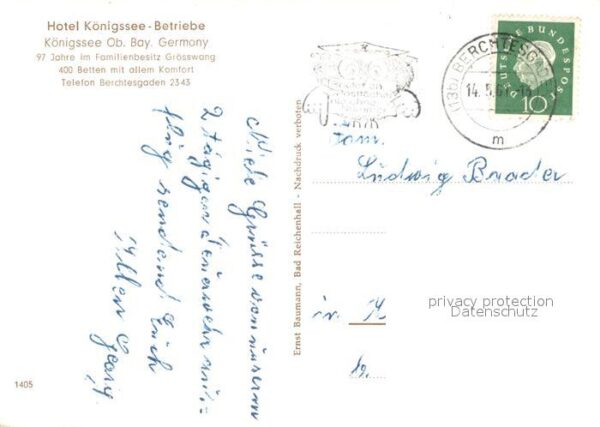 Hotel Königssee-Betriebe
Königssee Ob. Bay. Germany
97 Jahre im Familienbesitz Grösswang
400 Betten mit allem Komfort
Telefon Berchtesgaden 2343
Viele Grüsse von unserm
2 tägigen Feuerwehraus-
flug sendend Euch
Allen Georg
1405
Ernst Baumann, Bad Reichenhall - Nachdruck verboten
(13b) BERCHTESGADEN
14.5.61
m
DEUTSCHE BUNDESPOST
10
Fam.
Ludwig Brader
in K
privacy protection
Datenschutz